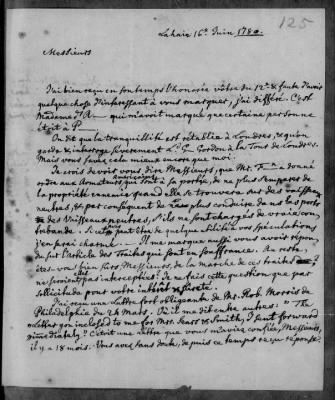 125
Lahaie 16e. Juin 1780.
Messieurs
J'ai bien reçu en son temps l'honorée vôtre du 12e. & faute d'avoir
quelque chose d'intéressant à vous marquer, j'ai différé. C'est
Madame d'A— qui m'avoit marqué que certaine personne
étoit à P—
On dit que la tranquillité est rétablie à Londres, & qu'on
garde & interroge sévèrement L. G. Gordon à la Tour de Londres.
Mais vous savez cela mieux encore que moi.
Je crois devoir vous dire Messieurs, que Mr. F—n a donné
ordre aux Armateurs Américains qui sont à sa portée, de ne plus s'emparer de
la propriété ennemie quand elle se trouvera sur des vaisseaux
neutres, & par conséquent de ne plus conduire dans les ports
des Vaisseaux neutres, s'ils ne sont chargés de vraie con-
trebande. Si cela peut être de quelque utilité à vos spéculations
j'en serai charmé. — Il me marque aussi vous avoir répon-
du sur l'article des Traites qui sont en souffrance. Au reste
êtes-vous bien sûrs Messieurs, de la marche de ces traites?
ne seroient pas interceptées? Je ne fais cette question que par
sollicitude pour votre intérêt & sûreté.
J'ai reçu une Lettre fort obligeante de Mr. Rob. Morris de
Philadelphie du 28 Mars. Où il me dit entre autres: "The
Letter you inclosed to me for Mrs. Sears & Smith, I sent forward
immediately." C'étoit une lettre que vous m'aviez confiée, Messieurs,
il y a 18 mois. Vous avez sans doute, depuis ce temps reçu réponse.